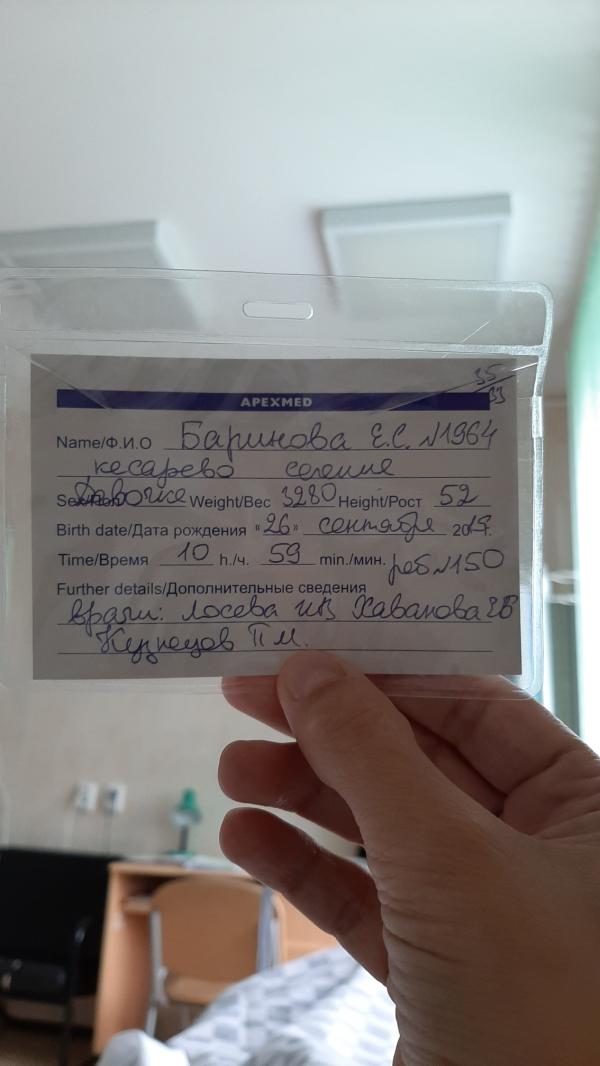 35/33
APEXMED
Name/Ф.И.О Баринова Е.С. №1964
кесарево сечение
Sex/Пол Девочка Weight/Вес 3280 Height/Рост 52
Birth date/Дата рождения «26» сентября 2019г.
Time/Время 10 h./ч. 59 min./мин. реб №150
Further details/Дополнительные сведения
врачи: Лосева Хаванова
Кузнецов П М.